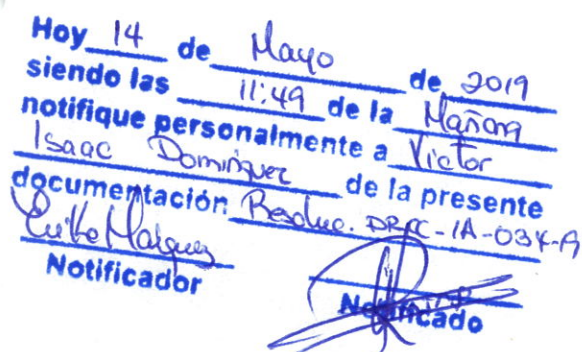 Hoy 14 de Mayo de 2019
siendo las 11:49 de la Mañana
notifique personalmente a Victor
Isaac Dominguez de la presente
documentación Resoluc. DRPC-IA-034-A
Notificador
Notificado